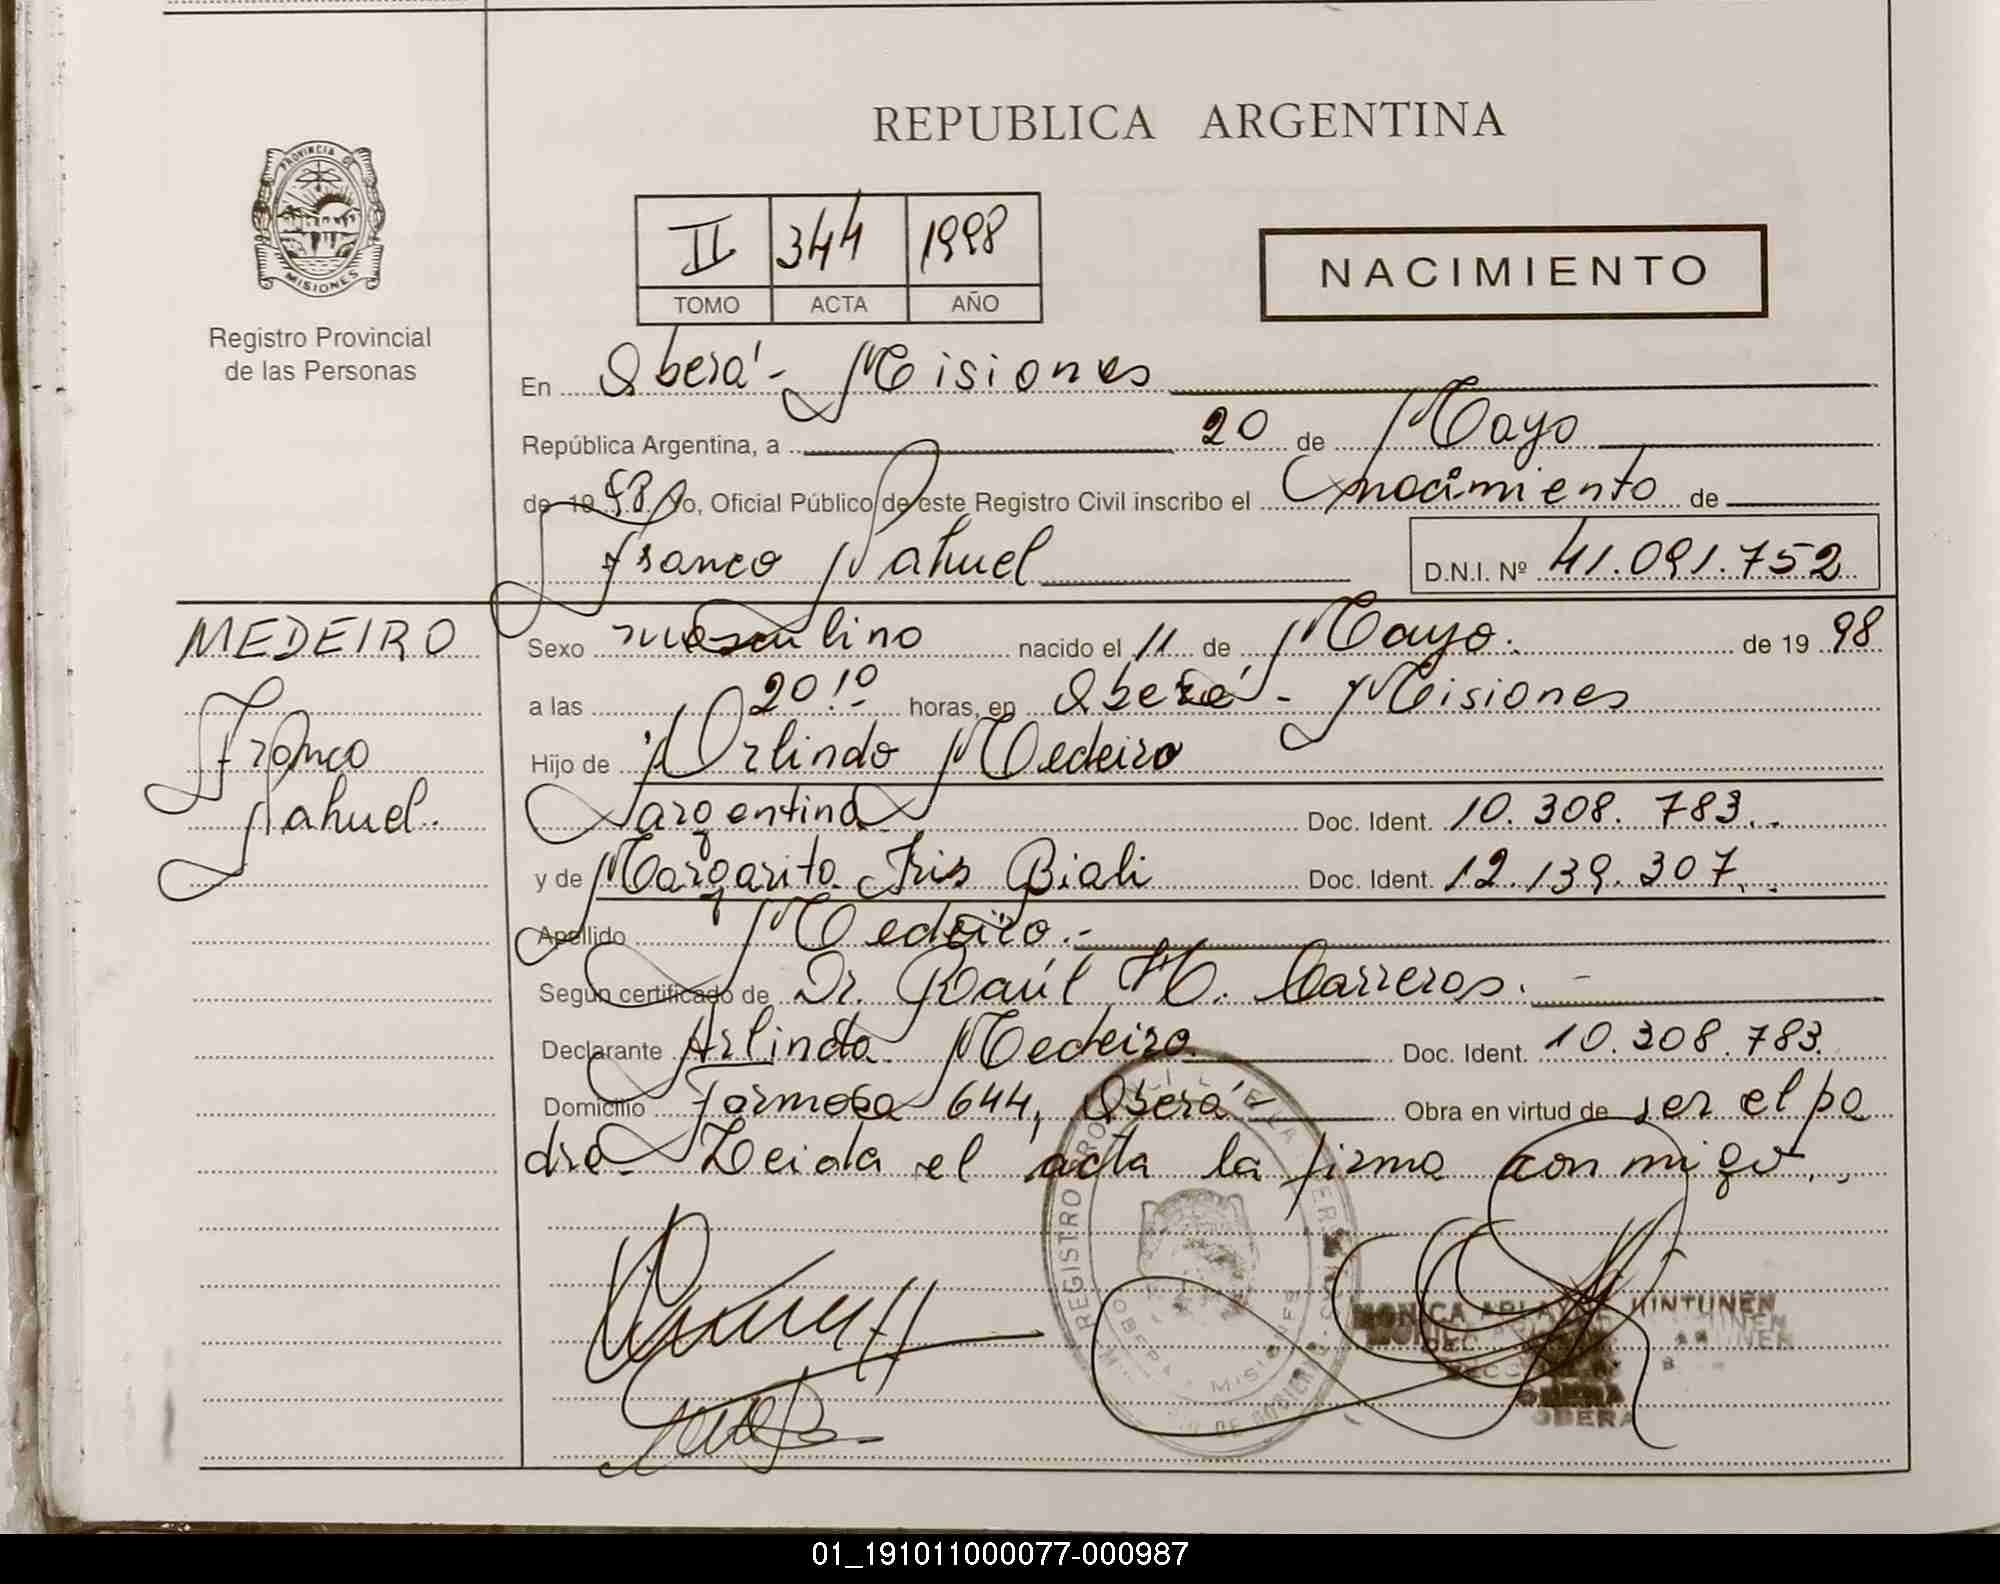 PROVINCIA DE
MISIONES
Registro Provincial
de las Personas
REPUBLICA ARGENTINA
II 344 1998
TOMO ACTA AÑO
NACIMIENTO
En Oberá - Misiones
República Argentina, a 20 de Mayo
de 1998 Yo, Oficial Público de este Registro Civil inscribo el nacimiento de
Franco Nahuel D.N.I. Nº 41.091.752
MEDEIRO
Franco
Nahuel.
Sexo masculino nacido el 11 de Mayo. de 1998
a las 20¹⁰ horas, en Oberá - Misiones
Hijo de Orlindo Medeiro
argentina Doc. Ident. 10.308.783.-
y de Margarita Iris Biali Doc. Ident. 12.139.307.-
Apellido Medeiro.-
Según certificado de Dr. Raúl H. Carreras. -
Declarante Arlindo Medeiro Doc. Ident. 10.308.783.
Domicilio Formosa 644, Oberá - Obra en virtud de ser el pa
dre. Leida el acta la firma conmigo.,
REGISTRO
OBERA MISIONES
MONICA HINTUNEN
OBERA
OBERA
01_191011000077-000987